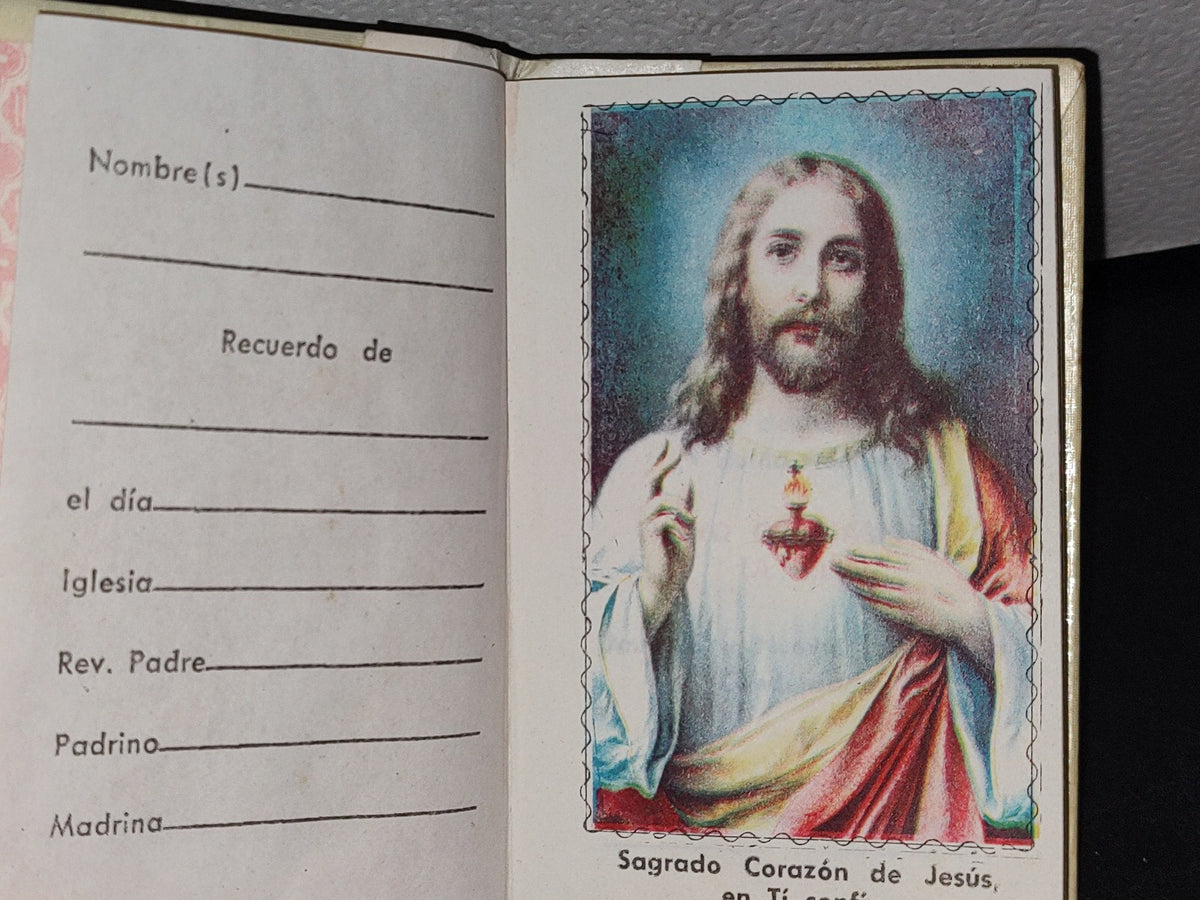 Nombre(s)
Recuerdo de
el día
Iglesia
Rev. Padre
Padrino
Madrina
Sagrado Corazón de Jesús,
en Tí